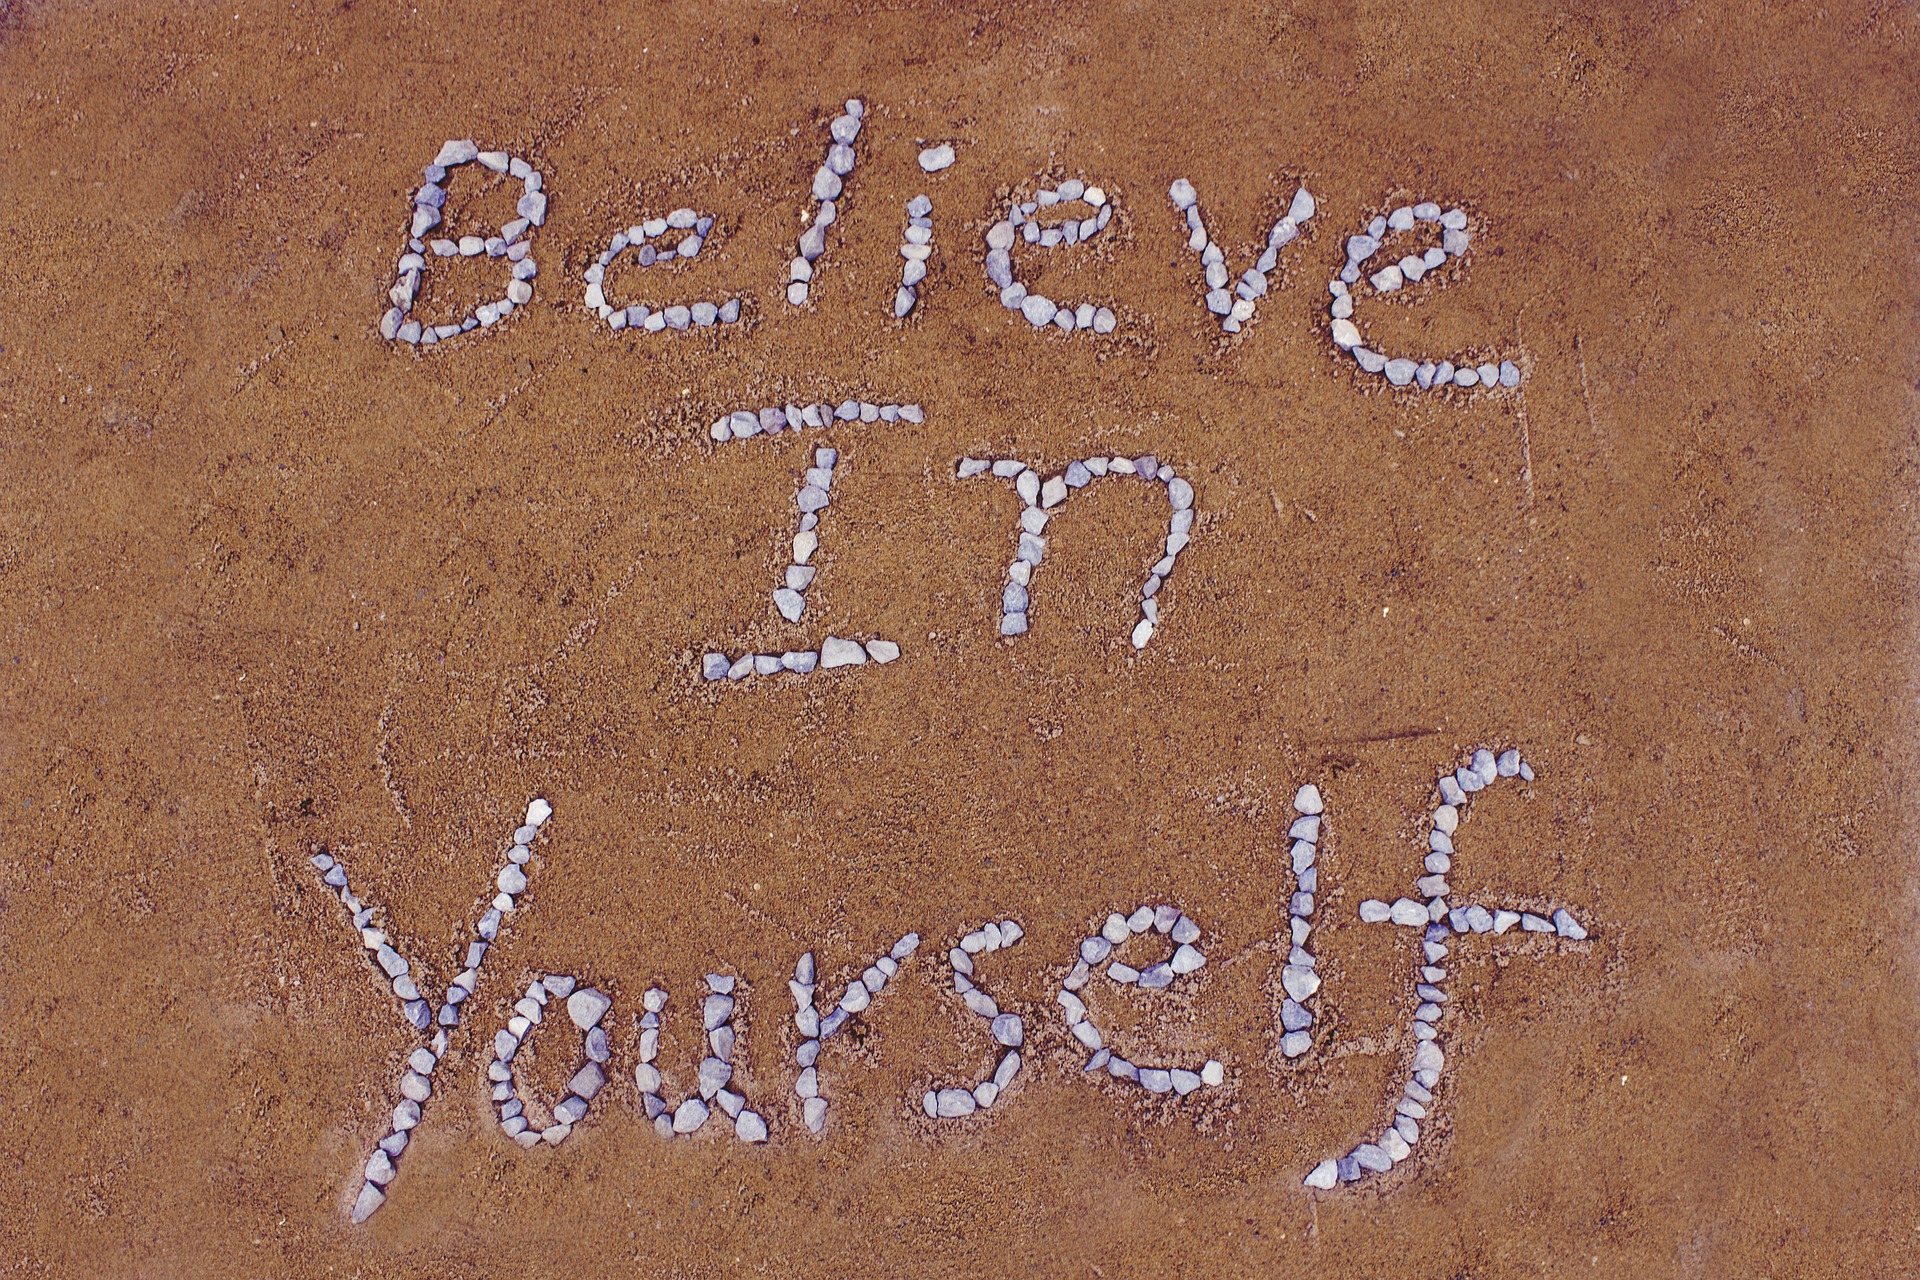 Believe
In
Yourself